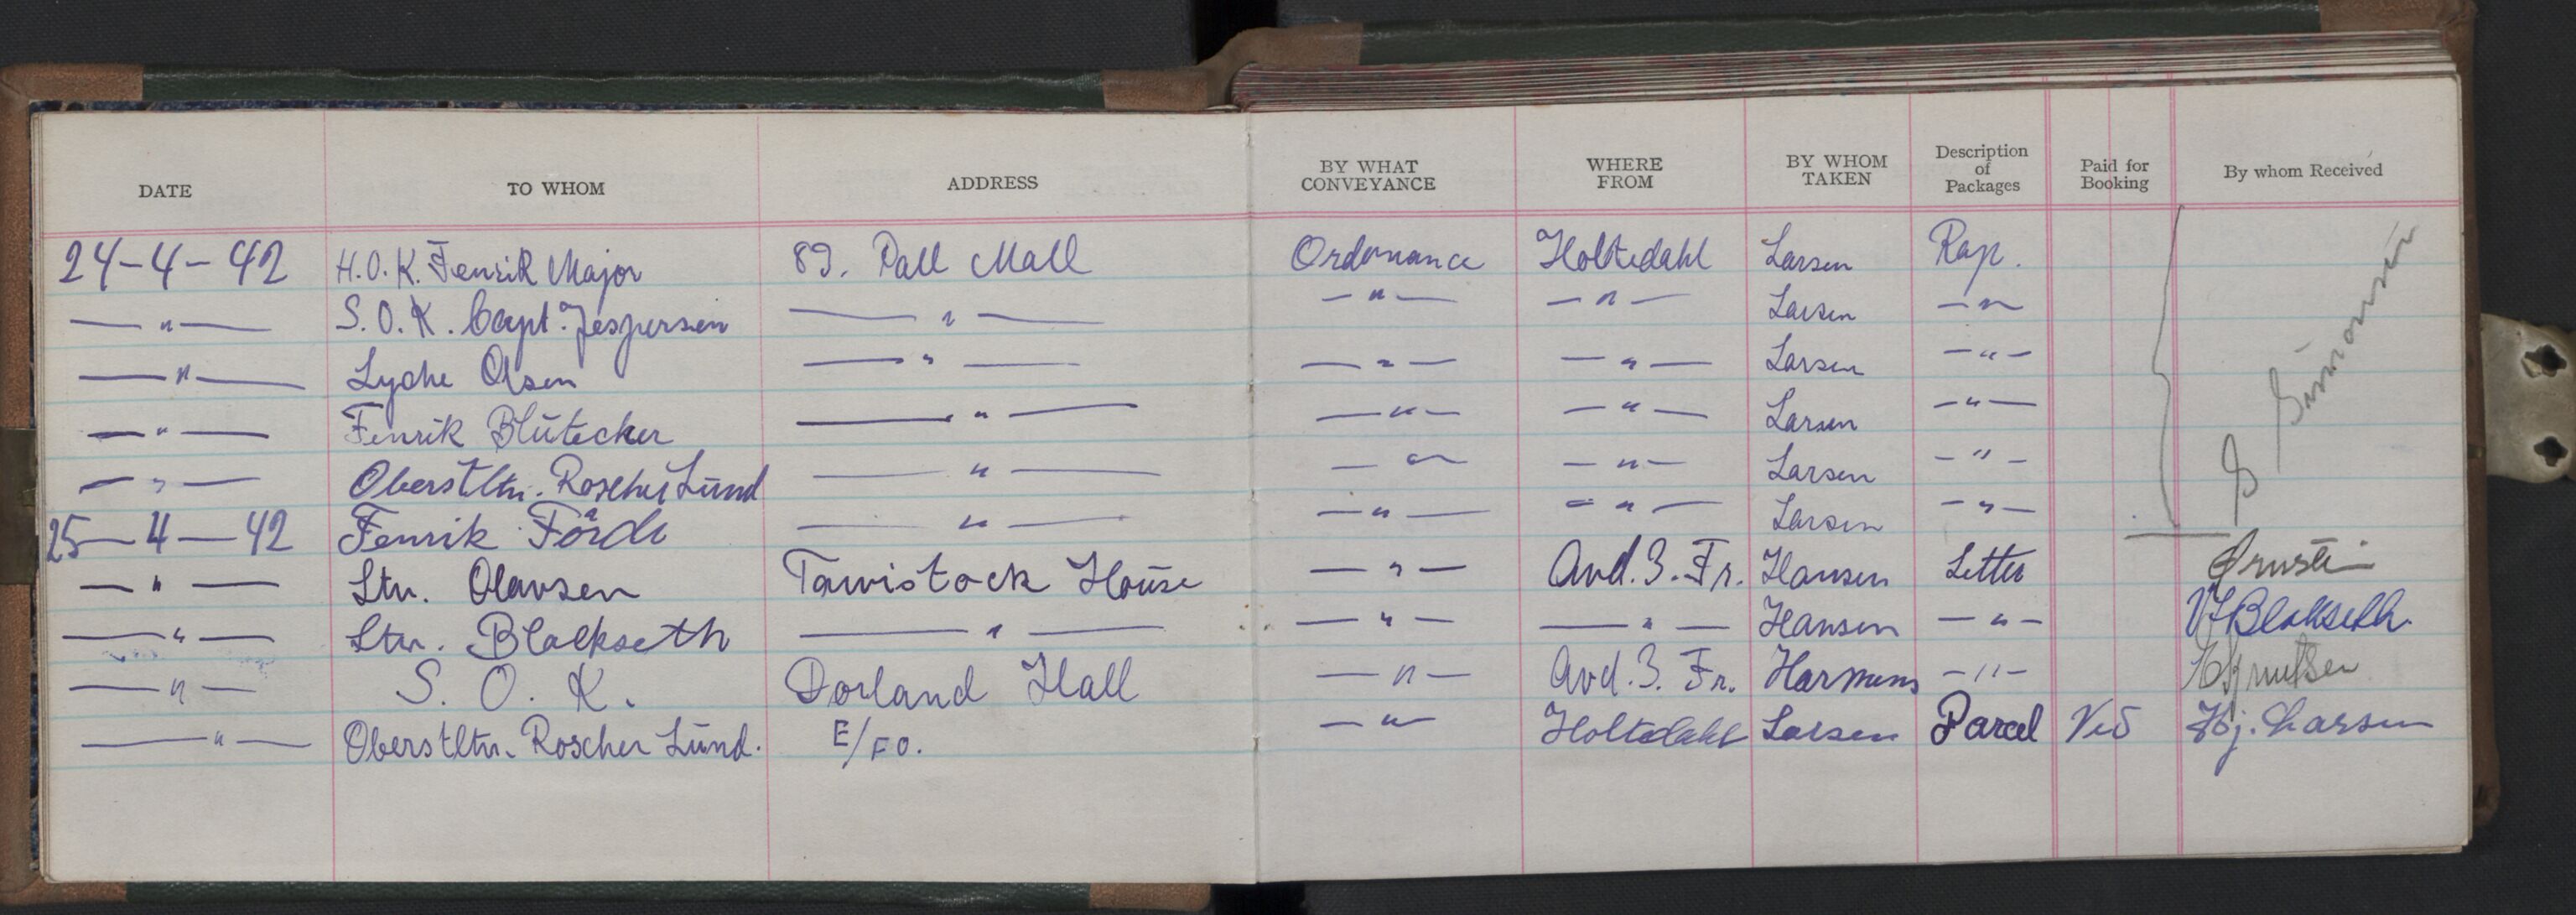 DATE TO WHOM ADDRESS BY WHAT CONVEYANCE WHERE FROM BY WHOM TAKEN Description of Packages Paid for Booking By whom Received
24-4-42 H.O.K. Fenrik Major 83. Pall Mall Ordonnance Holtedahl Larsen Rap.
—"— S.O.K. Capt. Jespersen —"— —"— —"— Larsen —"
—"— Lyche Olsen —"— —"— —"— Larsen —"— Simonsen
—"— Fenrik Blütecker —"— —"— —"— Larsen —"—
—"— Oberstltn. Roscher Lund —"— —"— —"— Larsen —"—
25-4-42 Fenrik Förde —"— —"— —"— Larsen —"—
—"— Ltn. Olavsen Tavistock House —"— Avd. 3. Fr. Hansen Letter
—"— Ltn. Blackseth —"— —"— —"— Hansen —"— Blakseth.
—"— S. O. K. Dorland Hall —"— Avd. 3. Fr. Harmens —"— Knutsen
—"— Oberstltn. Roscher Lund. E/FO. —"— Holtedahl Larsen Parcel Hj. Larsen